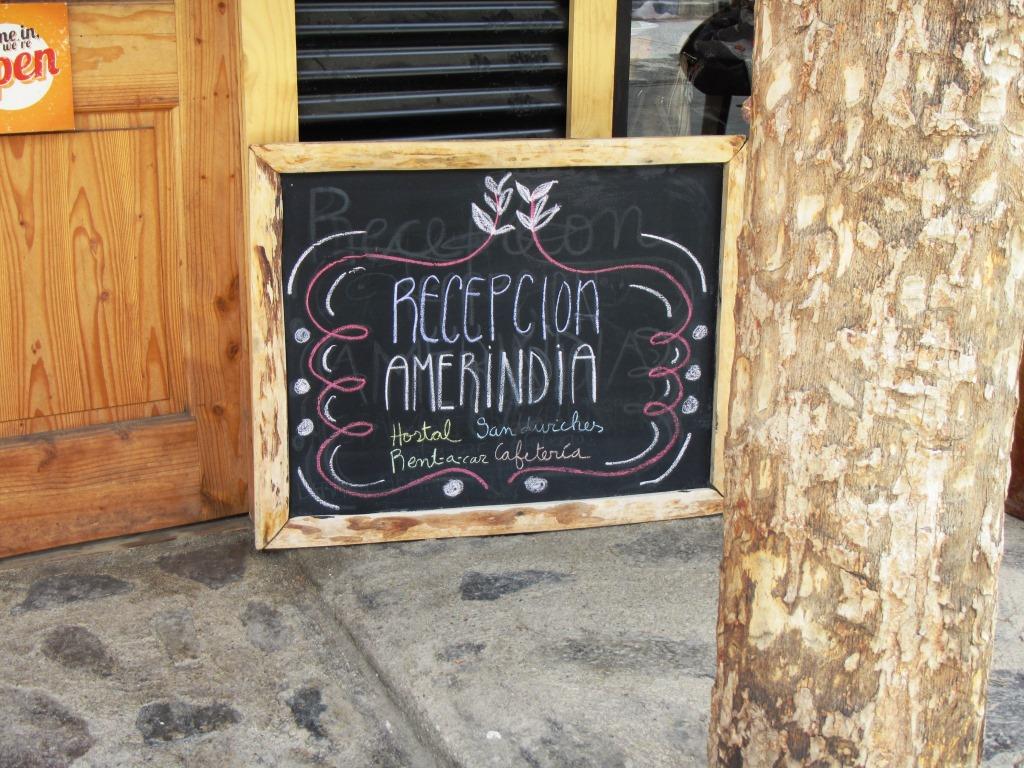 me in,
we're
pen
Recepcion
RECEPCION
AMERINDIA
Hostal Sandwiches
Rent-a-car Cafetería